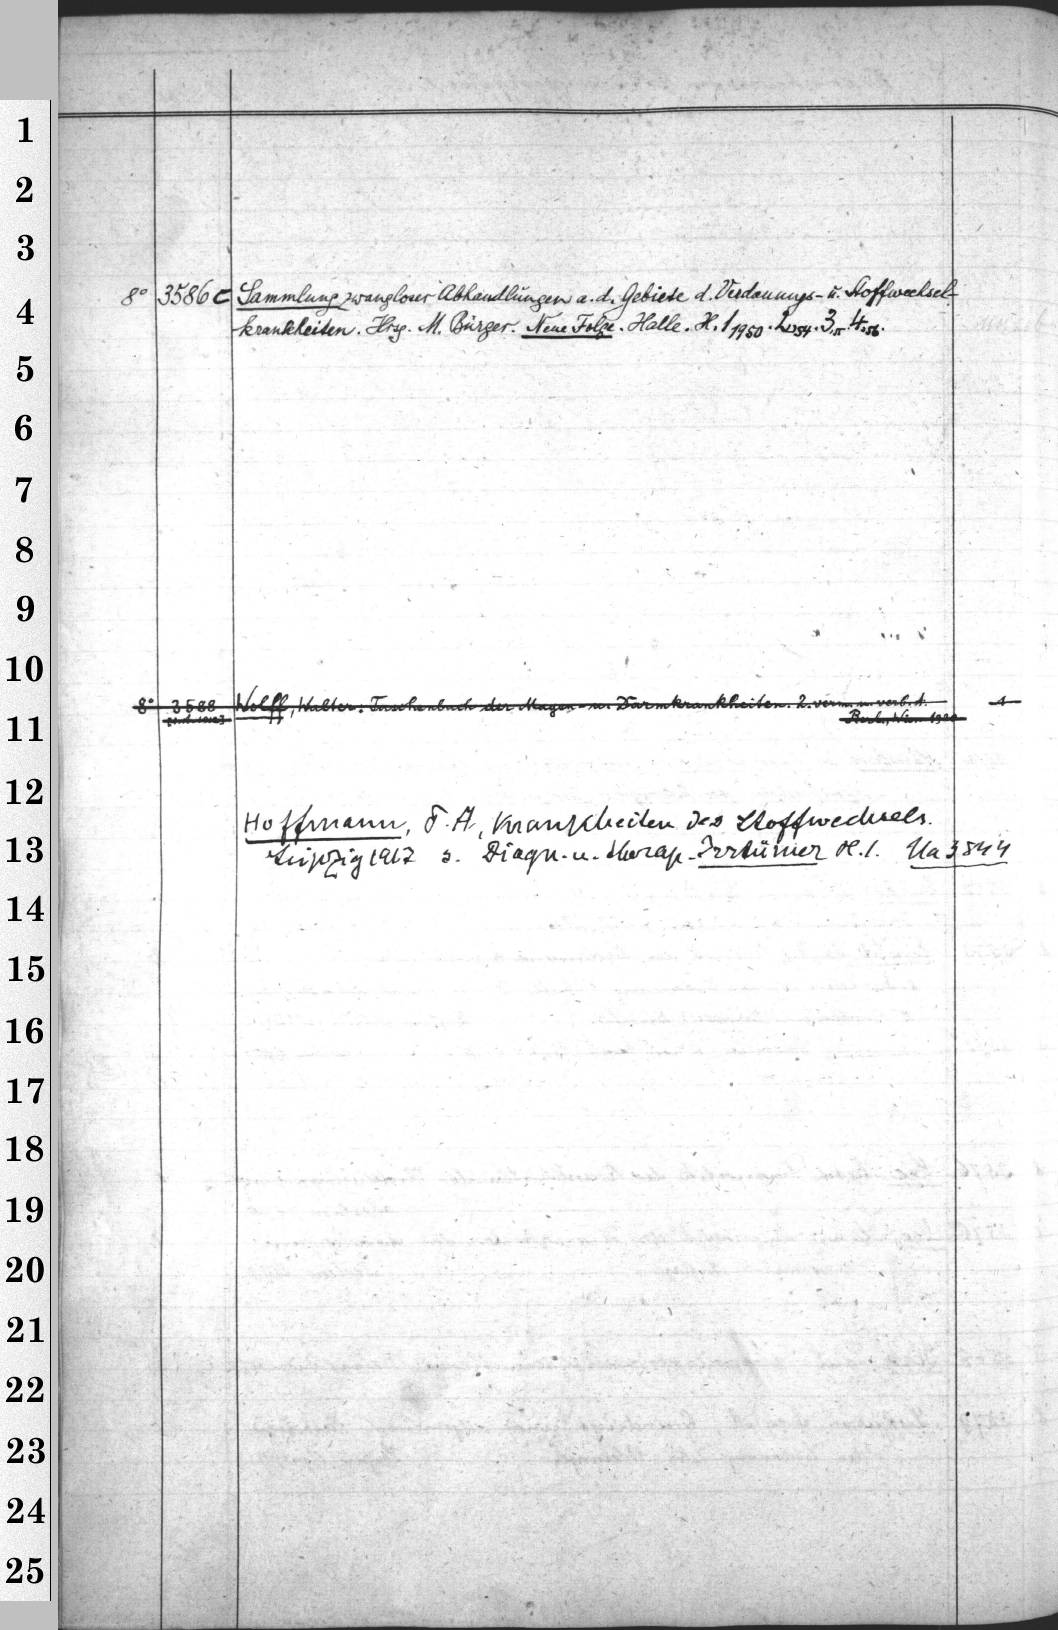 1
2
3
8° 3586 c Sammlung zwangloser Abhandlungen a. d. Gebiete d. Verdauungs- u. Stoffwechsel-
4
krankheiten. Hrsg. M. Bürger. Neue Folge. Halle. H. 1 1950. 2.54. 3. 4.56.
5
6
7
8
9
10
8° 3588 Wolff, Walter: Taschenbuch der Magen- u. Darmkrankheiten. 2. verm. u. verb. A. 1
Berlin, Wien 1920
11
12
Hoffmann, F. A., Krankheiten des Stoffwechsels.
13
Leipzig 1917 s. Diagn. u. therap. Irrtümer H. 1. Ua 3844
14
15
16
17
18
19
20
21
22
23
24
25